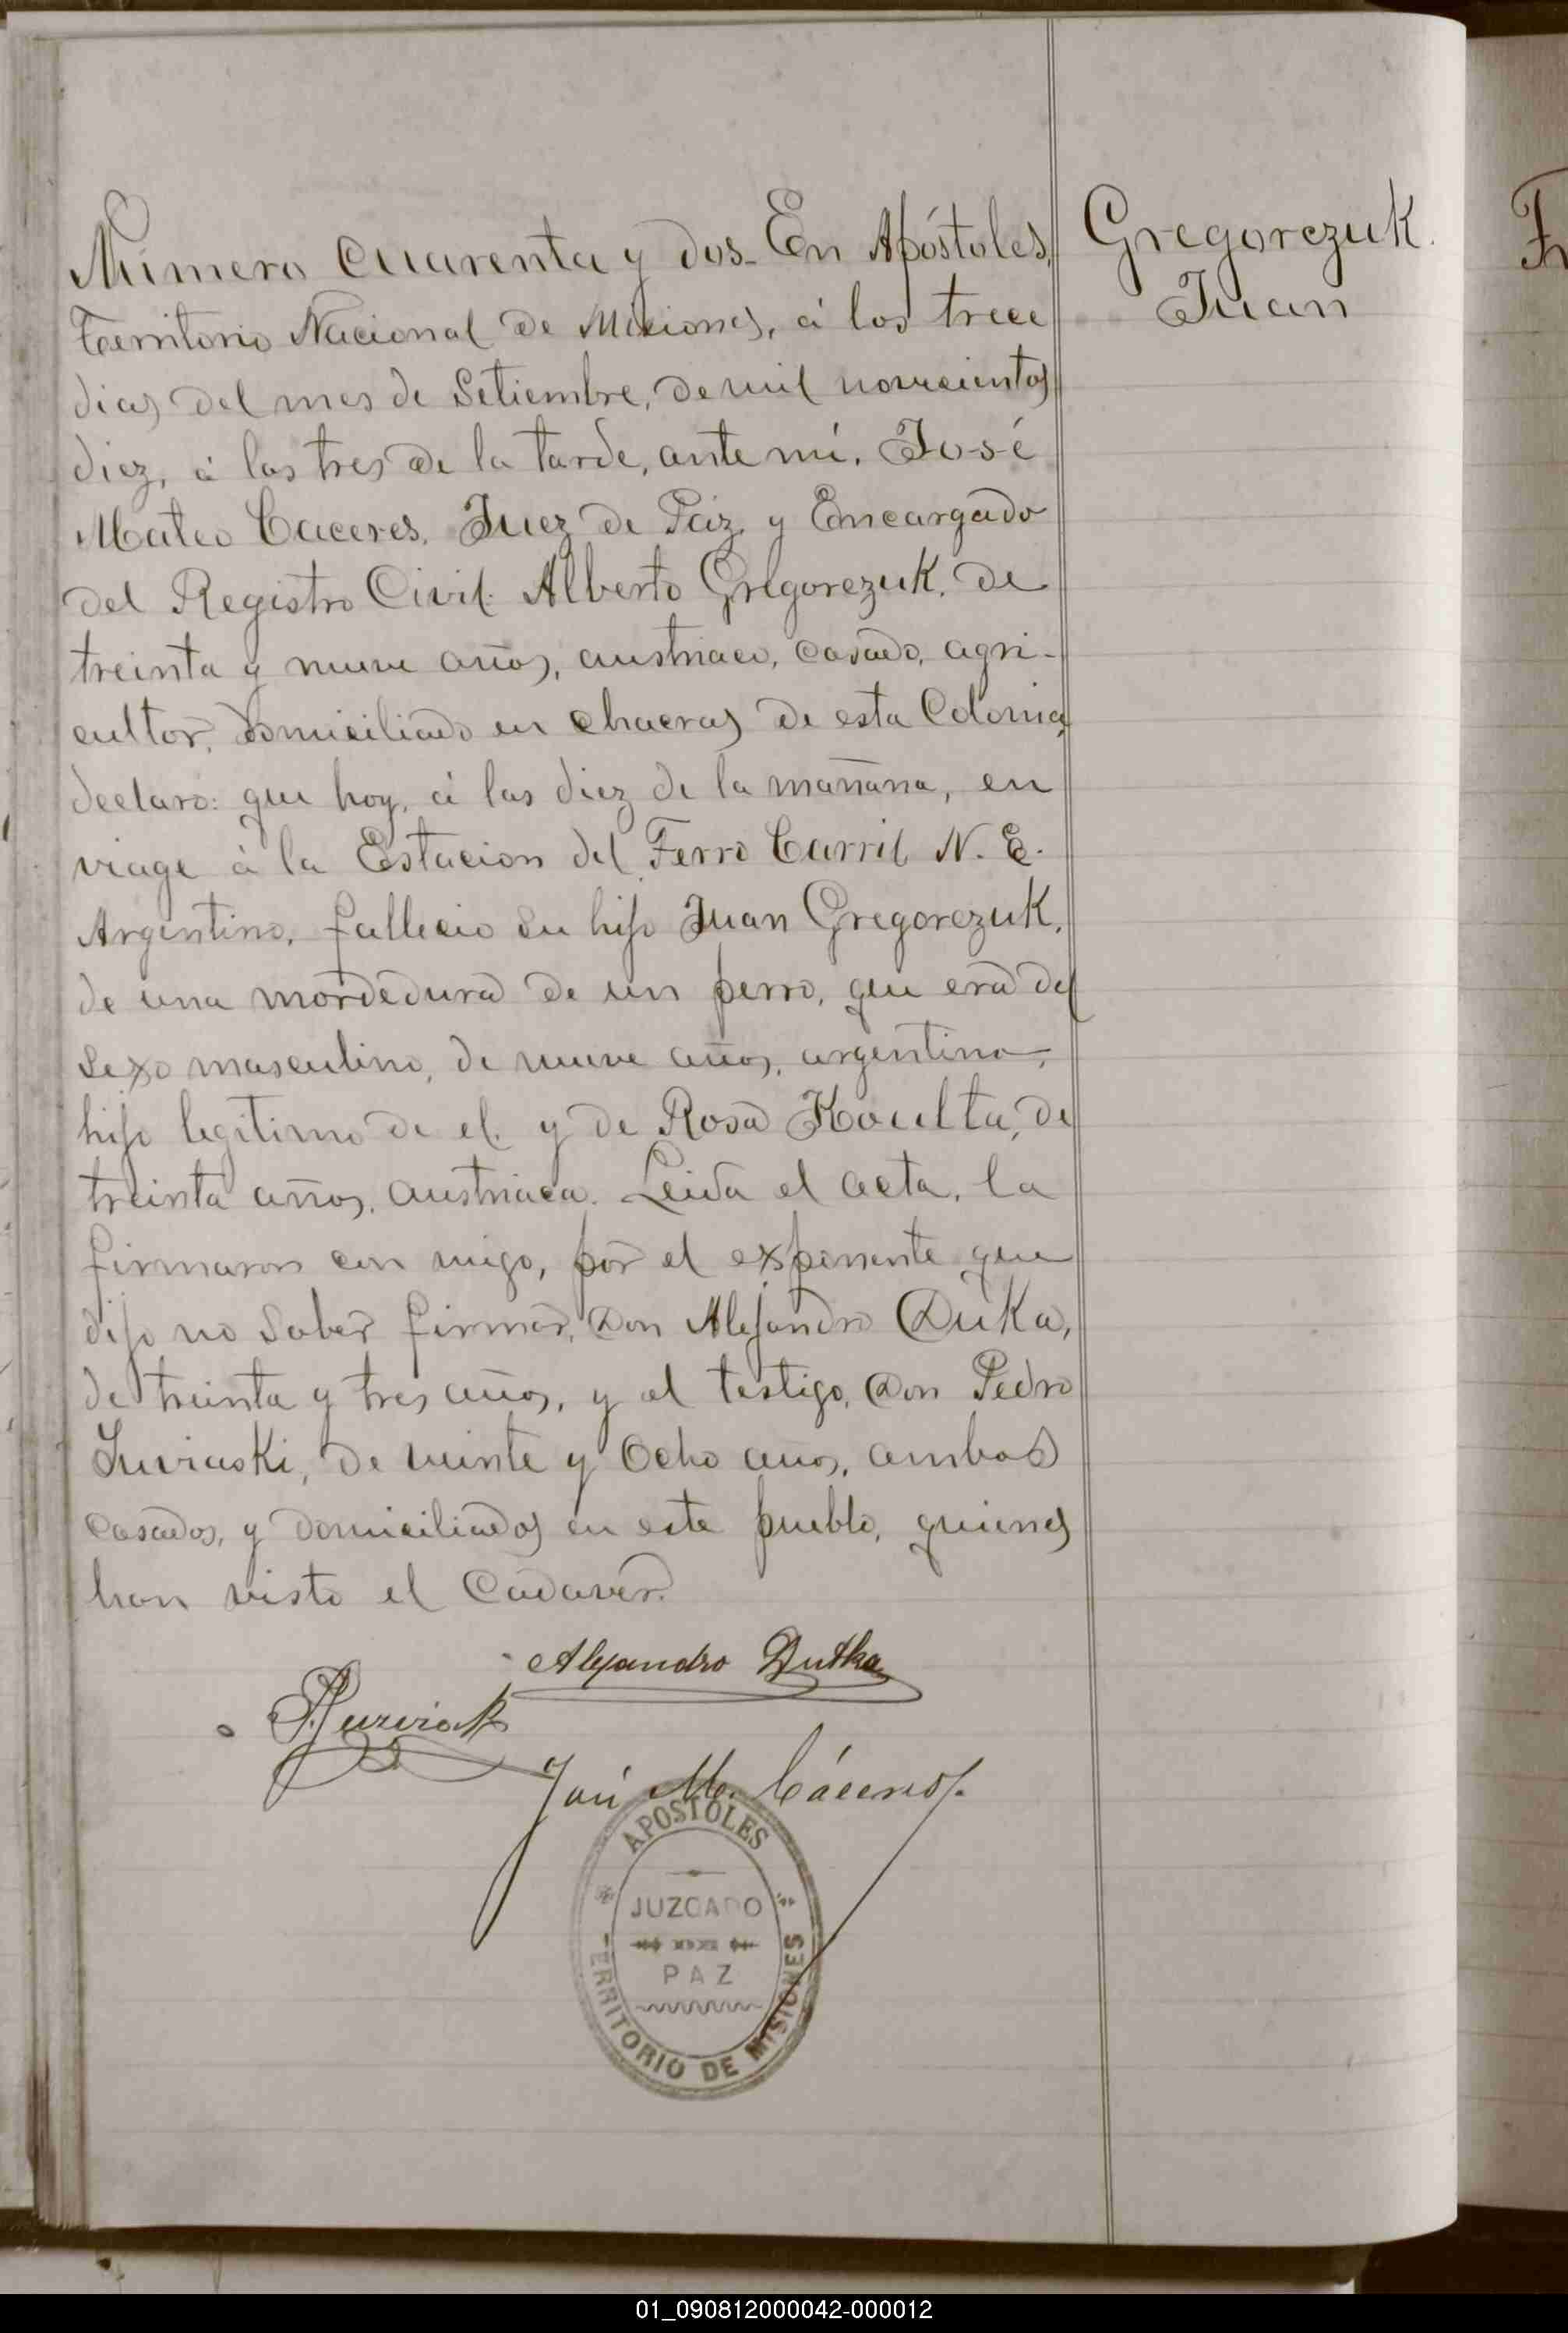 Número cuarenta y dos. En Apóstoles,
Territorio Nacional de Misiones, á los trece
dias del mes de Setiembre, de mil novecientos
diez, á las tres de la tarde, ante mí, José
Mateo Caceres, Juez de Paz y Encargado
del Registro Civil. Alberto Gregorczuk, de
treinta y nueve años, austriaco, casado, agri-
cultor, domiciliado en chacras de esta Colonia,
declaro: que hoy, á las diez de la mañana, en
viage á la Estacion del Ferro Carril N. E.
Argentino, fallecio su hijo Juan Gregorczuk,
de una mordedura de un perro, que era del
sexo masculino, de nueve años, argentino,
hijo legitimo de el y de Rosa Koculta, de
treinta años, austriaca. Leida el acta, la
firmaron con migo, por el exponente que
dijo no saber firmar, Don Alejandro Duka,
de treinta y tres años, y el testigo, Don Pedro
de veinte y ocho años, ambos
casados, y domiciliados en este pueblo, quienes
han visto el Cadaver.
Gregorczuk
Juan
Alejandro Dutka
José M. Cáceres
APOSTOLES
JUZGADO
PAZ
TERRITORIO DE MISIONES
01_090812000042-000012